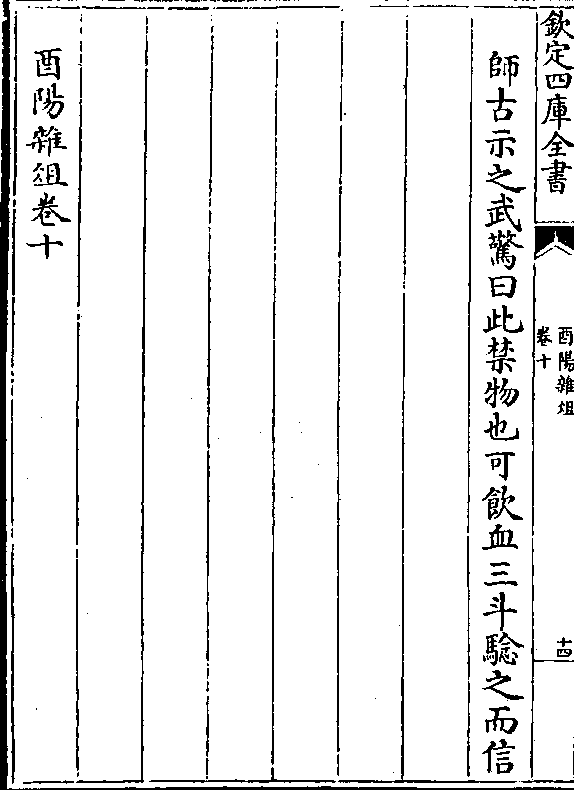 欽定四庫全書
酉陽雜俎
卷十
十四
師古示之武驚曰此禁物也可飲血三斗騐之而信
酉陽雜俎卷十